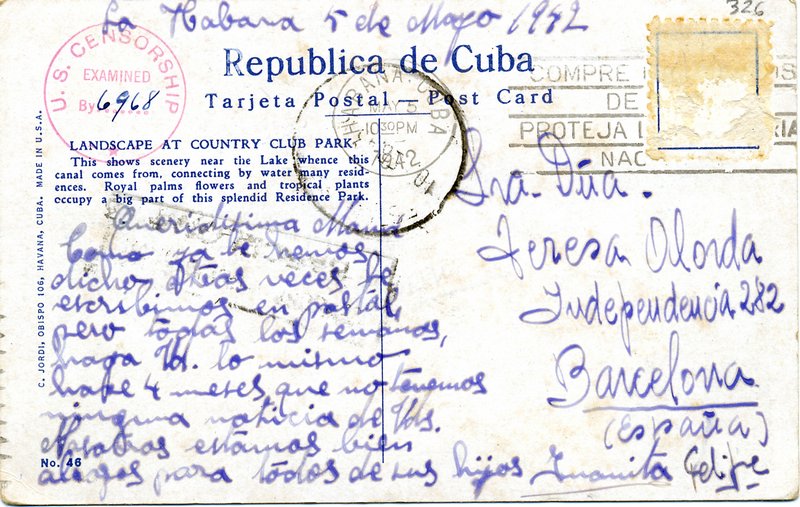 326
La Habana 5 de Mayo 1942
Republica de Cuba
Tarjeta Postal — Post Card
U.S. CENSORSHIP
EXAMINED
By 6968
HABANA, CUBA
MAY 5
10 30 PM
1942
COMPRE
DE
PROTEJA
NAC
LANDSCAPE AT COUNTRY CLUB PARK
This shows scenery near the Lake whence this
canal comes from, connecting by water many resid-
ences. Royal palms flowers and tropical plants
occupy a big part of this splendid Residence Park.
C. JORDI, OBISPO 106, HAVANA, CUBA. MADE IN U.S.A.
Queridísima Mamá
Como ya te hemos
dicho otras veces te
escribimos en postal,
pero todas las semanas,
haga Vd. lo mismo
hace 4 meses que no tenemos
ninguna noticia de Vds.
Nosotros estamos bien
abrazos para todos de sus hijos Juanita Felipe
No. 46
Sra. Dña.
Teresa Olorda
Independencia 282
Barcelona
(España)